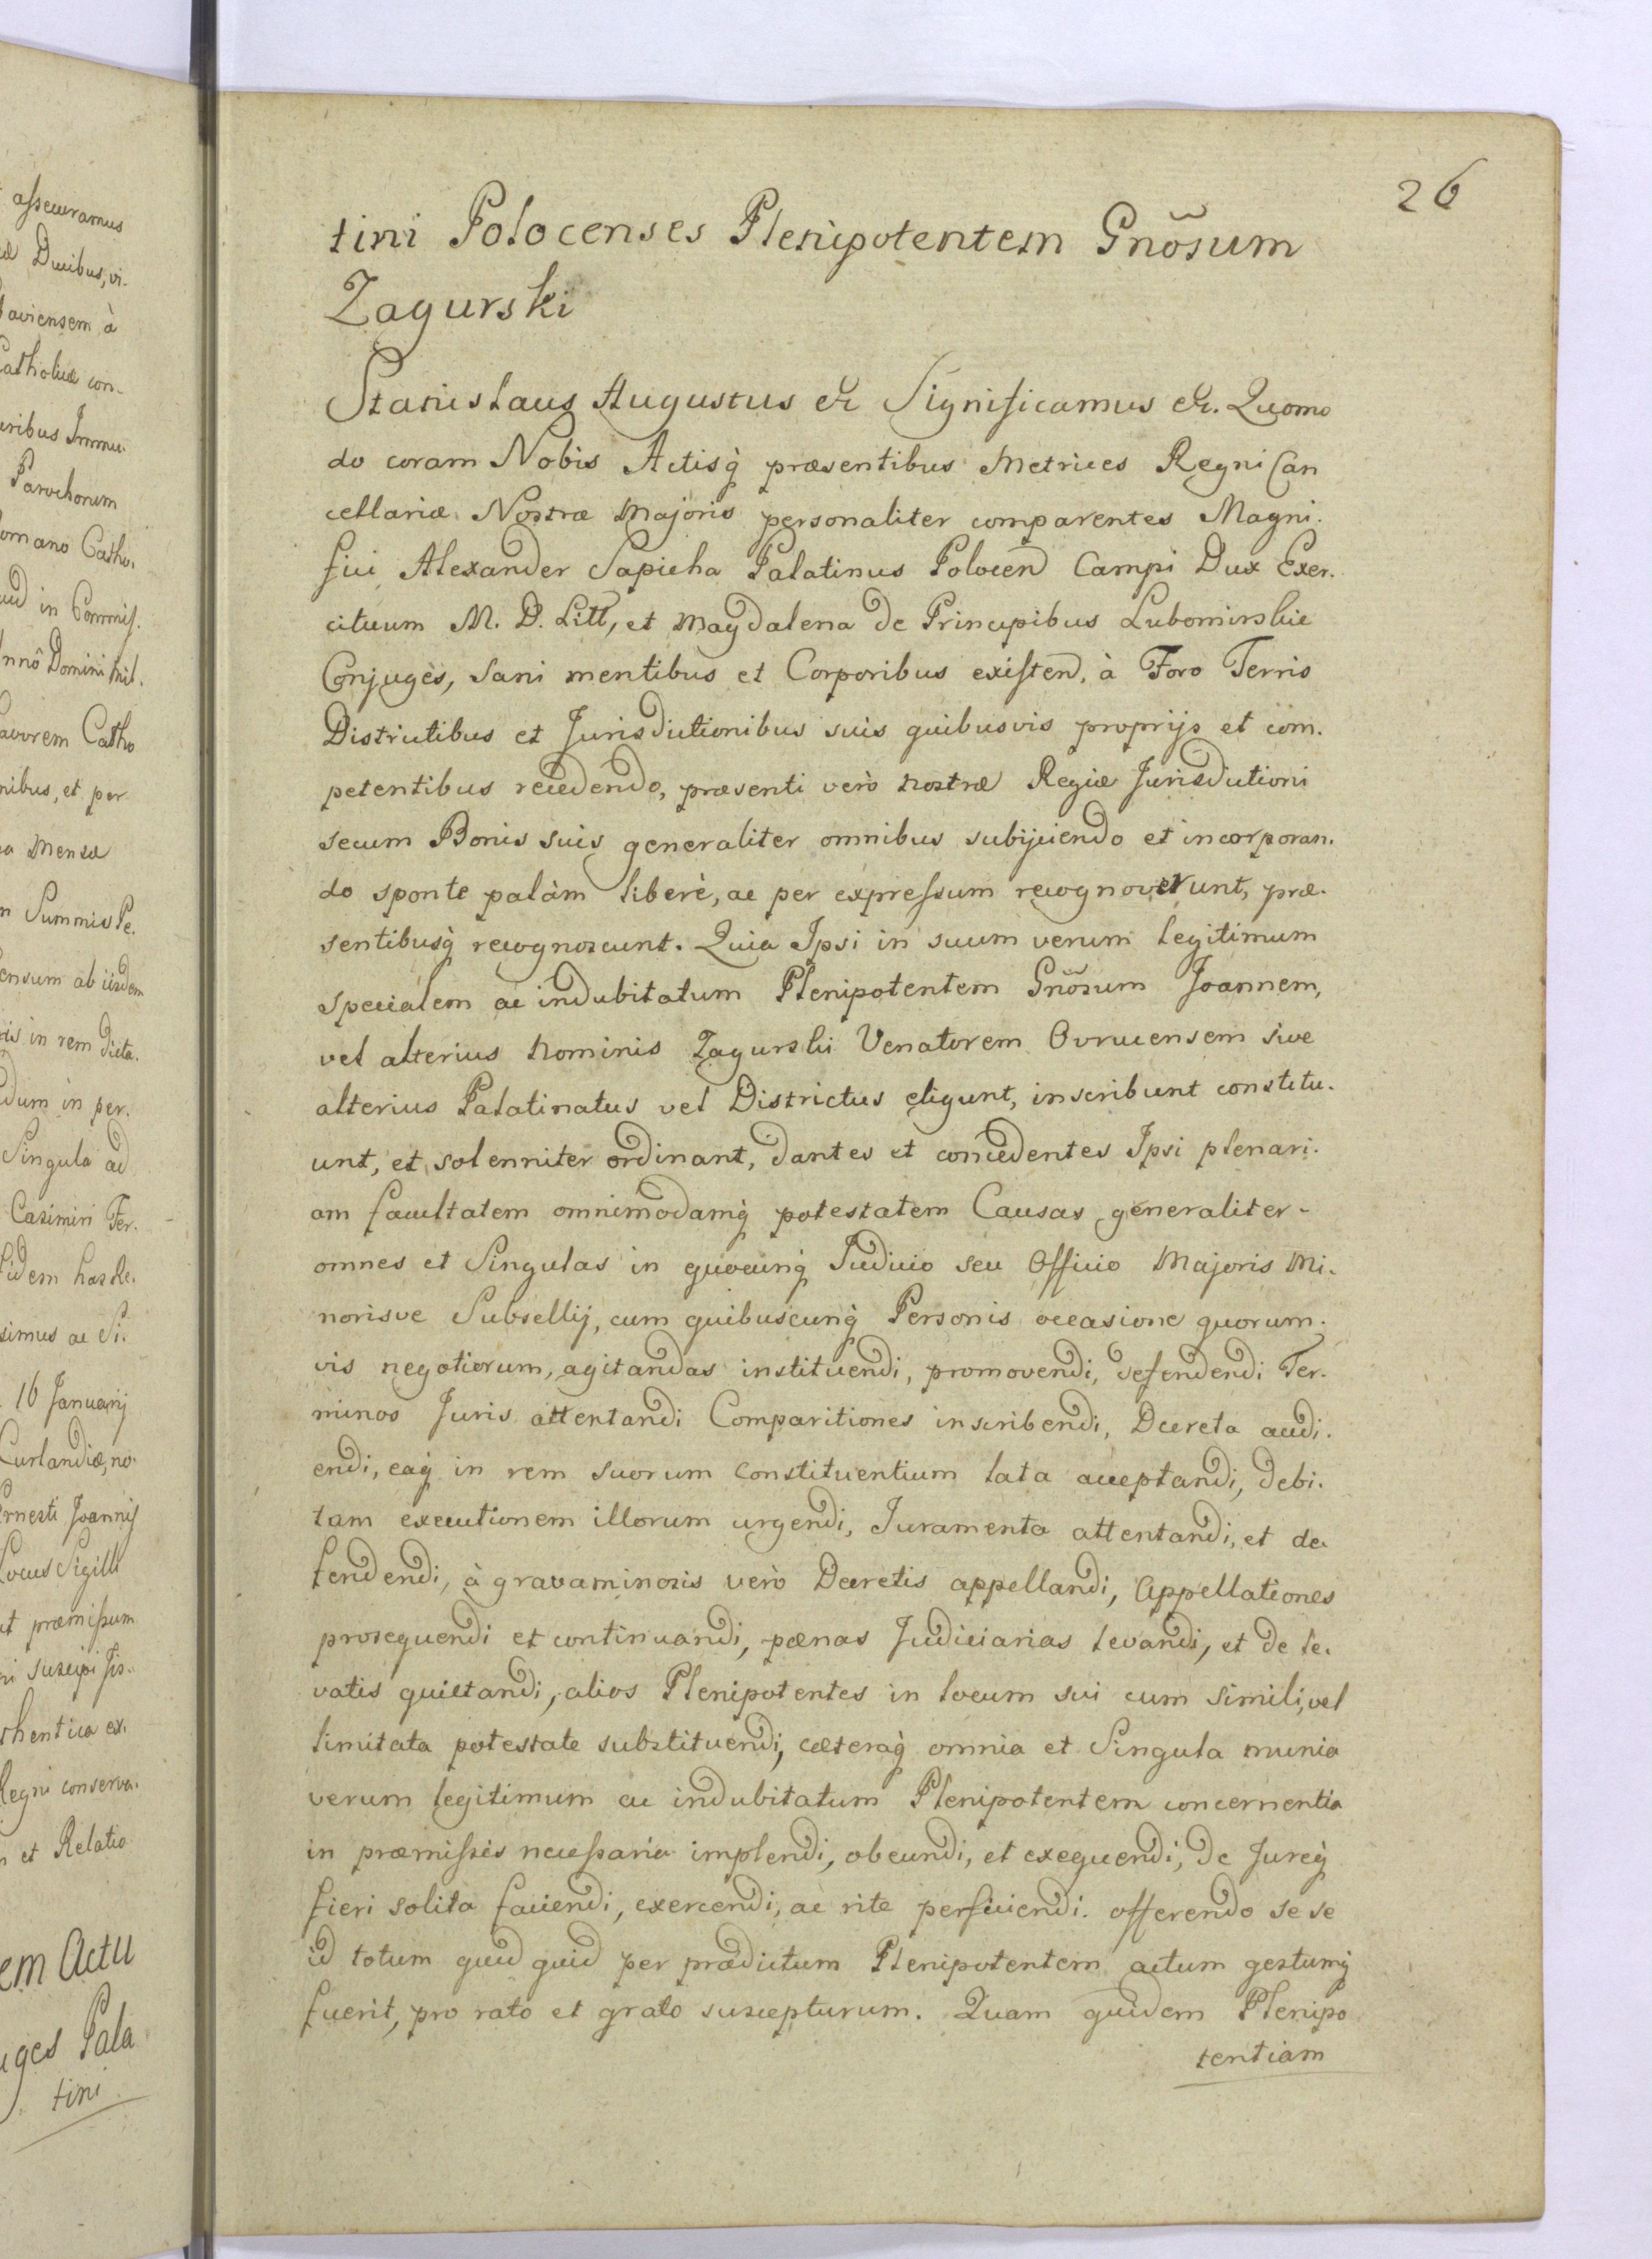 assecuramus
Ducibus, vi-
aviensem à
Catholicæ con-
uribus Immu-
Parochorum
omano Catho-
in Commis-
Annô Domini Mil-
avorem Catho
nibus, et per
Mensæ
Summis Pe-
ensum ab iisdem
in rem dicta-
dum in per-
Singula ad
Casimiri Fer-
Fidem has Re-
simus ac Si-
16 Januarij
Curlandiæ, no-
Ernesti Joannis
Locus Sigilli
ut præmissum
suscipi jus-
thentica ex-
Regni conserva-
et Relatio
em Actu
uges Pala
tini
26
tini Polocenses Plenipotentem Gnõsum
Zagurski
Stanislaus Augustus &c Significamus &c. Quomo
do coram Nobis Actisq̀ præsentibus Metrices Regni Can
cellariæ Nostræ Majoris personaliter comparentes Magni-
fici Alexander Sapieha Palatinus Polocen̄ Campi Dux Exer-
cituum M. D. Litt, et Magdalena de Principibus Lubomirskie
Conjugès, sani mentibus et Corporibus existen̄, à Foro Terris
Districtibus et Jurisdictionibus suis quibusvis proprijs et com-
petentibus recedendo, præsenti verò nostræ Regiæ Jurisdictioni
secum Bonis suis generaliter omnibus subijciendo et incorporan-
do sponte palàm liberè, ac per expressum recognoverunt, præ-
sentibusq̀ recognoscunt. Quia Ipsi in suum verum legitimum
specialem ac indubitatum Plenipotentem Gnõsum Joannem,
vel alterius Nominis Zagurski Venatorem Ovrucensem sive
alterius Palatinatus vel Districtus eligunt, inscribunt constitu-
unt, et solenniter ordinant, dantes et concedentes Ipsi plenari-
am facultatem omnimodamq̀ potestatem Causas generaliter-
omnes et Singulas in quocunq̀ Judicio seu Officio Majoris Mi-
norisve Subsellij, cum quibuscunq̀ Personis occasione quorum-
vis negotiorum, agitandas instituendi, promovendi, defendendi Ter-
minos Juris attentandi Comparitiones inscribendi, Decreta audi-
endi, eaq̀ in rem suorum Constituentium lata acceptandi, debi-
tam executionem illorum urgendi, Juramenta attentandi, et de-
fendendi, à gravaminosis verò Decretis appellandi, Appellationes
prosequendi et continuandi, pœnas Judiciarias levandi, et de le-
vatis quietandi, alios Plenipotentes in locum sui cum simili, vel
limitata potestate substituendi, cæteraq̀ omnia et Singula munia
verum legitimum ac indubitatum Plenipotentem concernentia
in præmissis necessaria implendi, obeundi, et exequendi, de Jureq̀
fieri solita faciendi, exercendi, ac rite perficiendi. offerendo se se
id totum quid quid per prædictum Plenipotentem actum gestumq̀
fuerit, pro rato et grato suscepturum. Quam quidem Plenipo
tentiam